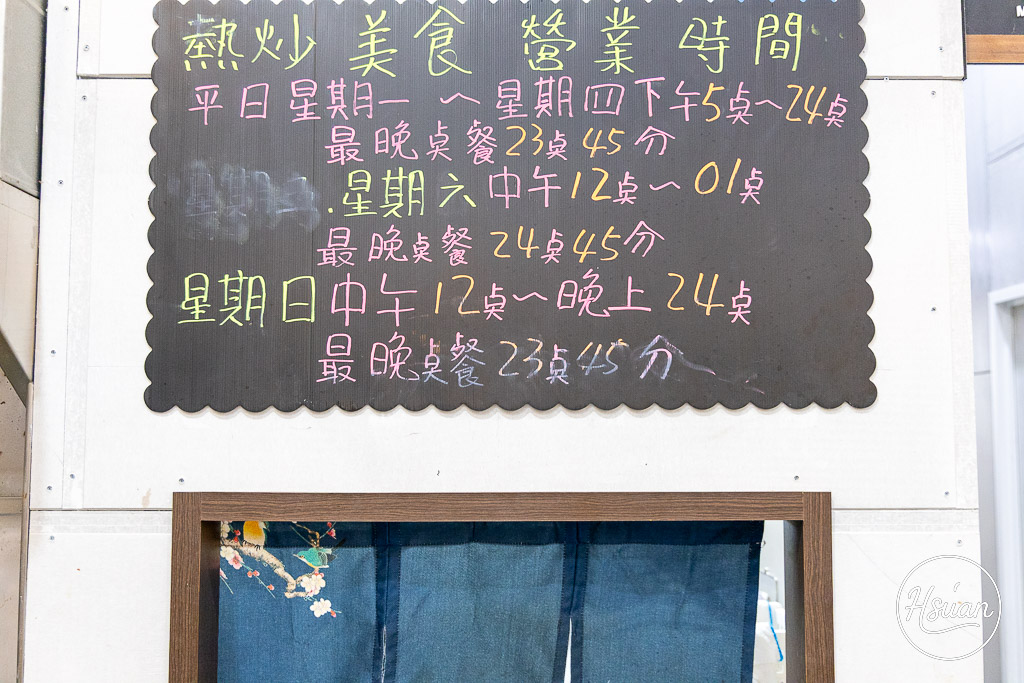 熱炒美食營業時間
平日星期一～星期四下午5點～24點
最晚桌餐23點45分
.星期六中午12點～01點
最晚桌餐24點45分
星期日中午12點～晚上24點
最晚桌餐23點45分
Hsuan